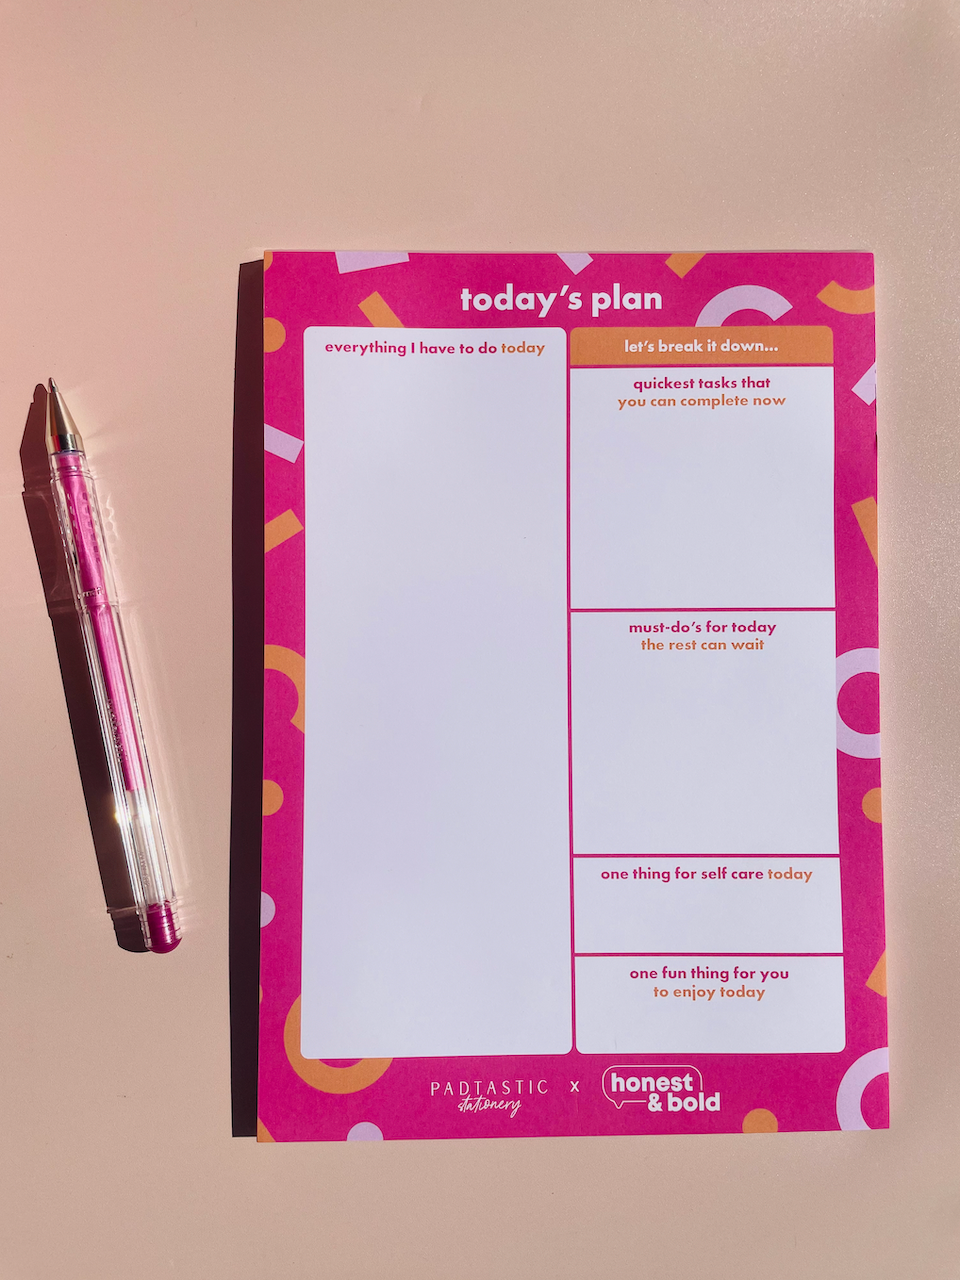 today's plan
everything I have to do today
let's break it down...
quickest tasks that
you can complete now
must-do's for today
the rest can wait
one thing for self care today
one fun thing for you
to enjoy today
PADTASTIC x honest
stationery & bold